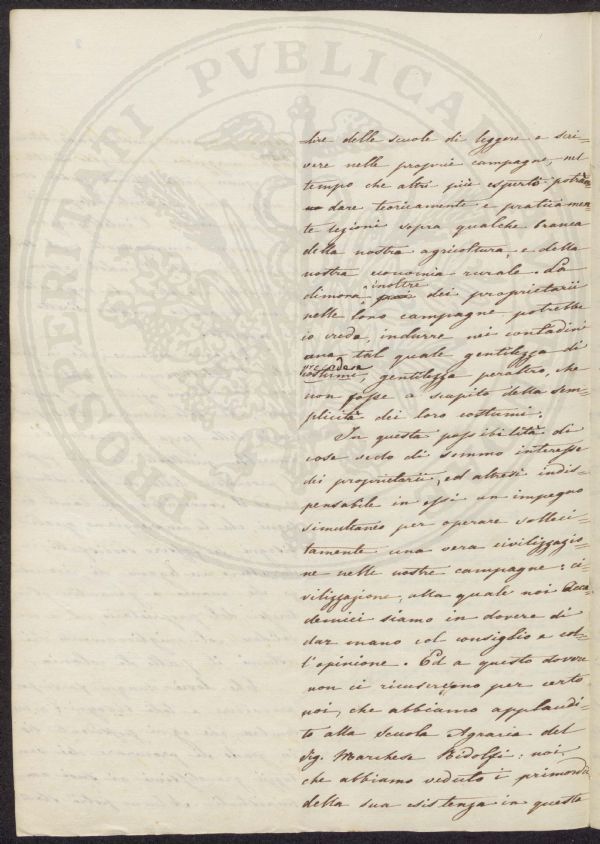 PROSPERITATI PVBLICAE
tire delle scuole di leggere e scri=
vere nelle proprie campagne, nel
tempo che altri più esperto potran
no dare teoricamente e praticamen=
te lezioni sopra qualche branca
della nostra agricoltura, e della
nostra economia rurale. La
dimora inoltre dei proprietarii
nelle loro campagne potrebbe
io credo, indurre nei contadini
una tal quale gentilezza di
costumi, gentilezza peraltro, che
non fosse a scapito della sem=
plicità dei loro costumi.
In questa possibilità di
cose vedo di sommo interesse
dei proprietarii, ed altresì indis=
pensabile in essi un impegno
simultaneo per operare solleci=
tamente una vera civilizzazio=
ne nelle nostre campagne: ci=
vilizzazione, alla quale noi Acca=
demici siamo in dovere di
dar mano col consiglio e col=
l'opinione. Ed a questo dovere
non ci ricuseremo per certo
noi, che abbiamo applaudi=
to alla Scuola Agraria del
Sig. Marchese Ridolfi: noi,
che abbiamo veduto i primordii
della sua esistenza in questa